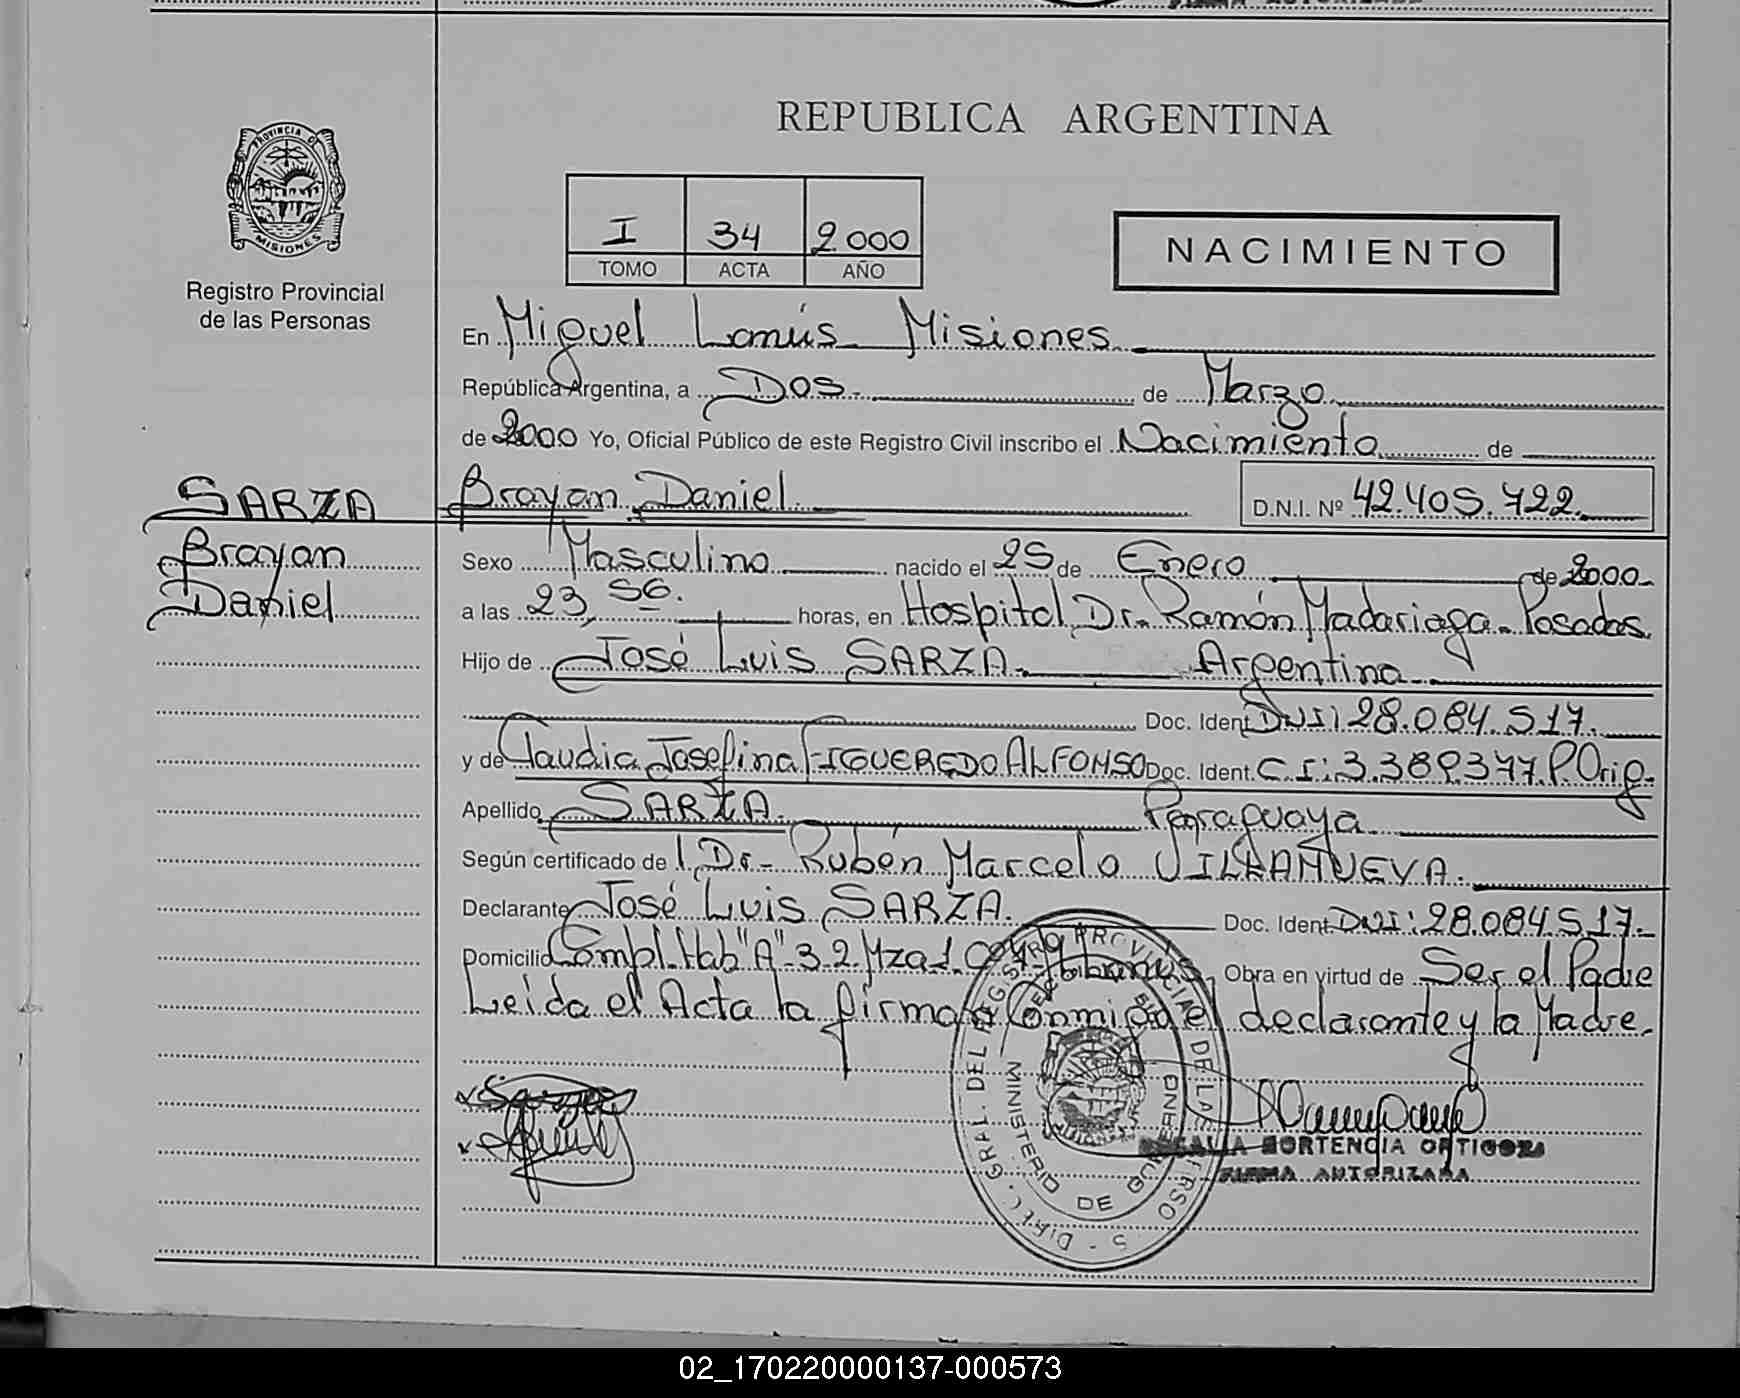 REPUBLICA ARGENTINA
PROVINCIA D
MISIONES
Registro Provincial
de las Personas
I 34 2000
TOMO ACTA AÑO
NACIMIENTO
En Miguel Lanús Misiones
República Argentina, a Dos de Marzo
de 2000 Yo, Oficial Público de este Registro Civil inscribo el Nacimiento de
SARZA
Brayan
Daniel
Brayan Daniel D.N.I. Nº 42.405.722
Sexo Masculino nacido el 25 de Enero de 2000
a las 23,56. horas, en Hospital Dr. Ramón Madariaga - Posadas
Hijo de José Luis SARZA Argentina
Doc. Ident DNI: 28.084.517
y de Claudia Josefina FIGUEREDO ALFONSO Doc. Ident. C.I: 3.389377. P. Orig.
Apellido SARZA Paraguaya
Según certificado de Dr. Rubén Marcelo VILLANUEVA
Declarante José Luis SARZA Doc. Ident DNI: 28.084.517
Domicilio Compl. Hab "A" - 3.2. Mza 1. Obra en virtud de Ser el Padre
Leida el Acta la firman Conmigo el declarante y la Madre.
DIREC. GRAL. DEL REGISTRO PROVINCIAL DE LAS PERSO
MINISTERIO DE GOBIERNO
HORTENCIA ORTIGOZA
FIRMA AUTORIZADA
02_170220000137-000573